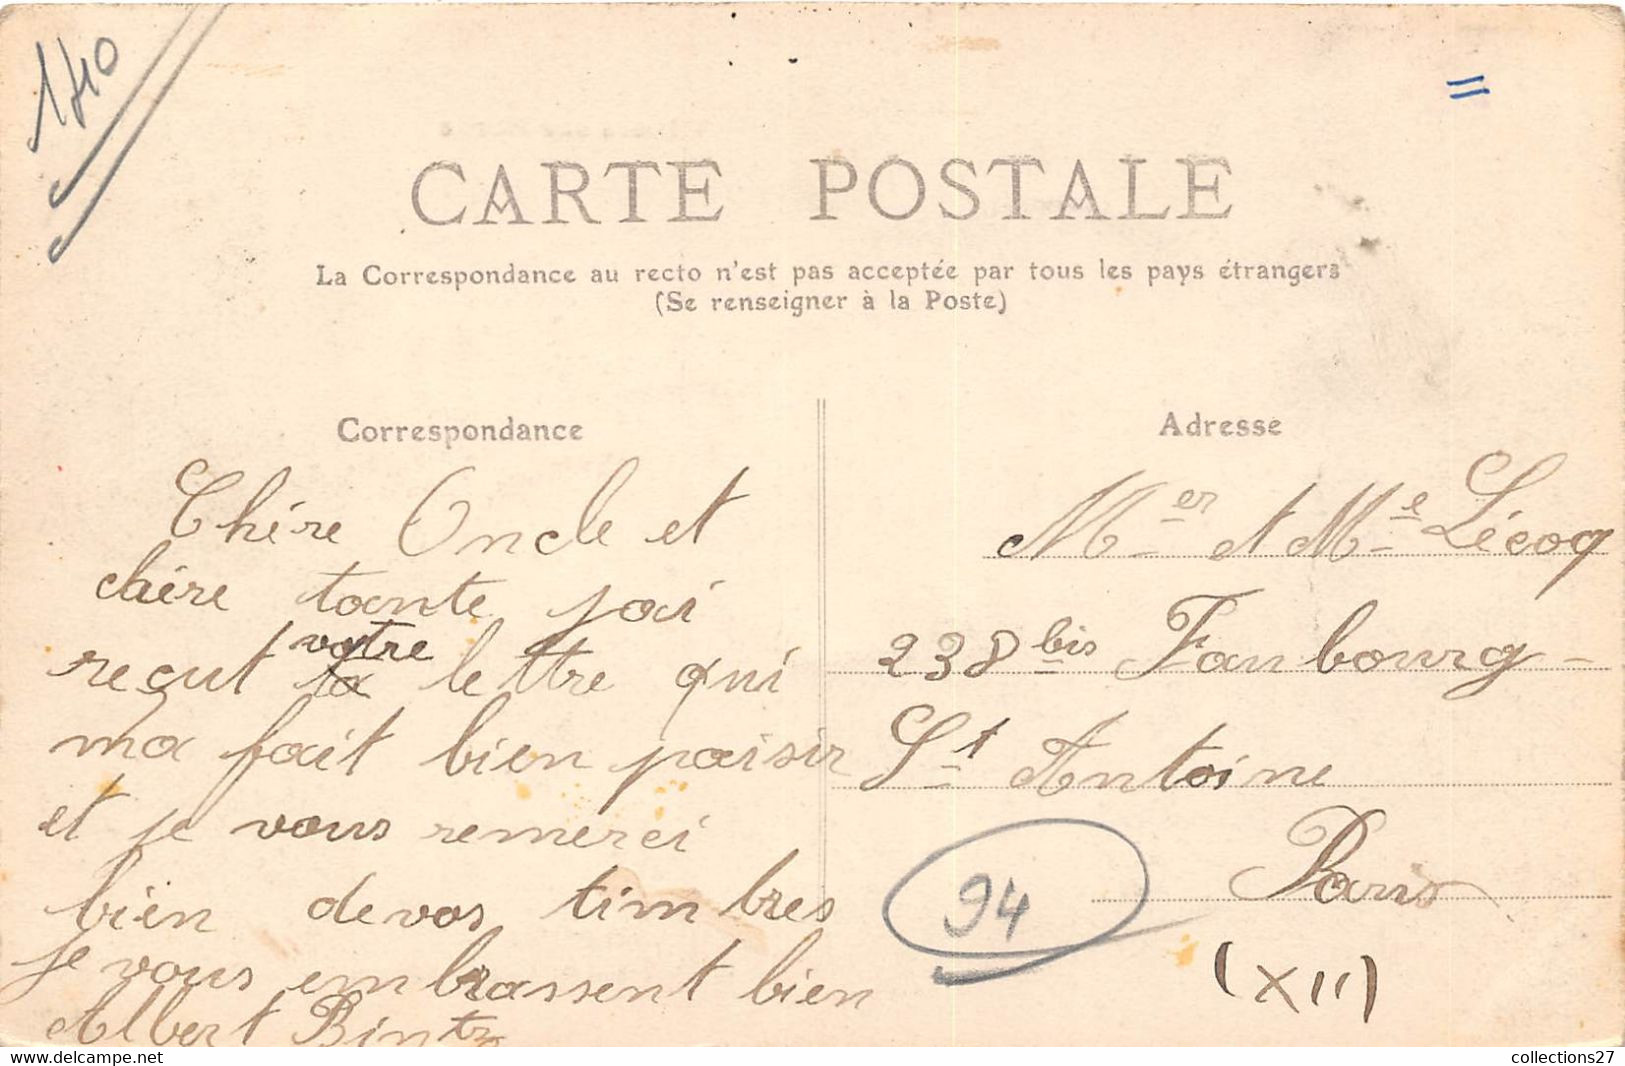 140
CARTE POSTALE
La Correspondance au recto n'est pas acceptée par tous les pays étrangers
(Se renseigner à la Poste)
Correspondance
Chère Oncle et
chère tante jai
reçut votre lettre qui
ma fait bien paisir
et je vous remerci
bien de vos timbres
je vous embrassent bien
Albert Bintz
Adresse
Mer et Me Lécoq
238 bis Fanbourg-
St Antoine
Paris
(XII)
94
collections27